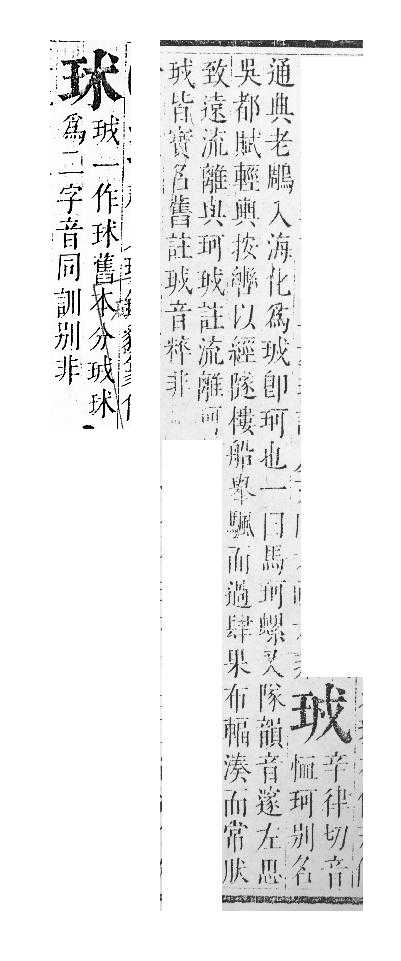 珬
辛律切音
恤珂別名
通典老鵰入海化爲珬卽珂也一曰馬珂螺又隊韻音邃左思
吳都賦輕輿按轡以經隧樓船舉颿而過肆果布輻湊而常肰
致遠流離與珂珬註流離珂
珬皆寶名舊註珬音粹非
珬一作舊本分珬
爲二字音同訓別非